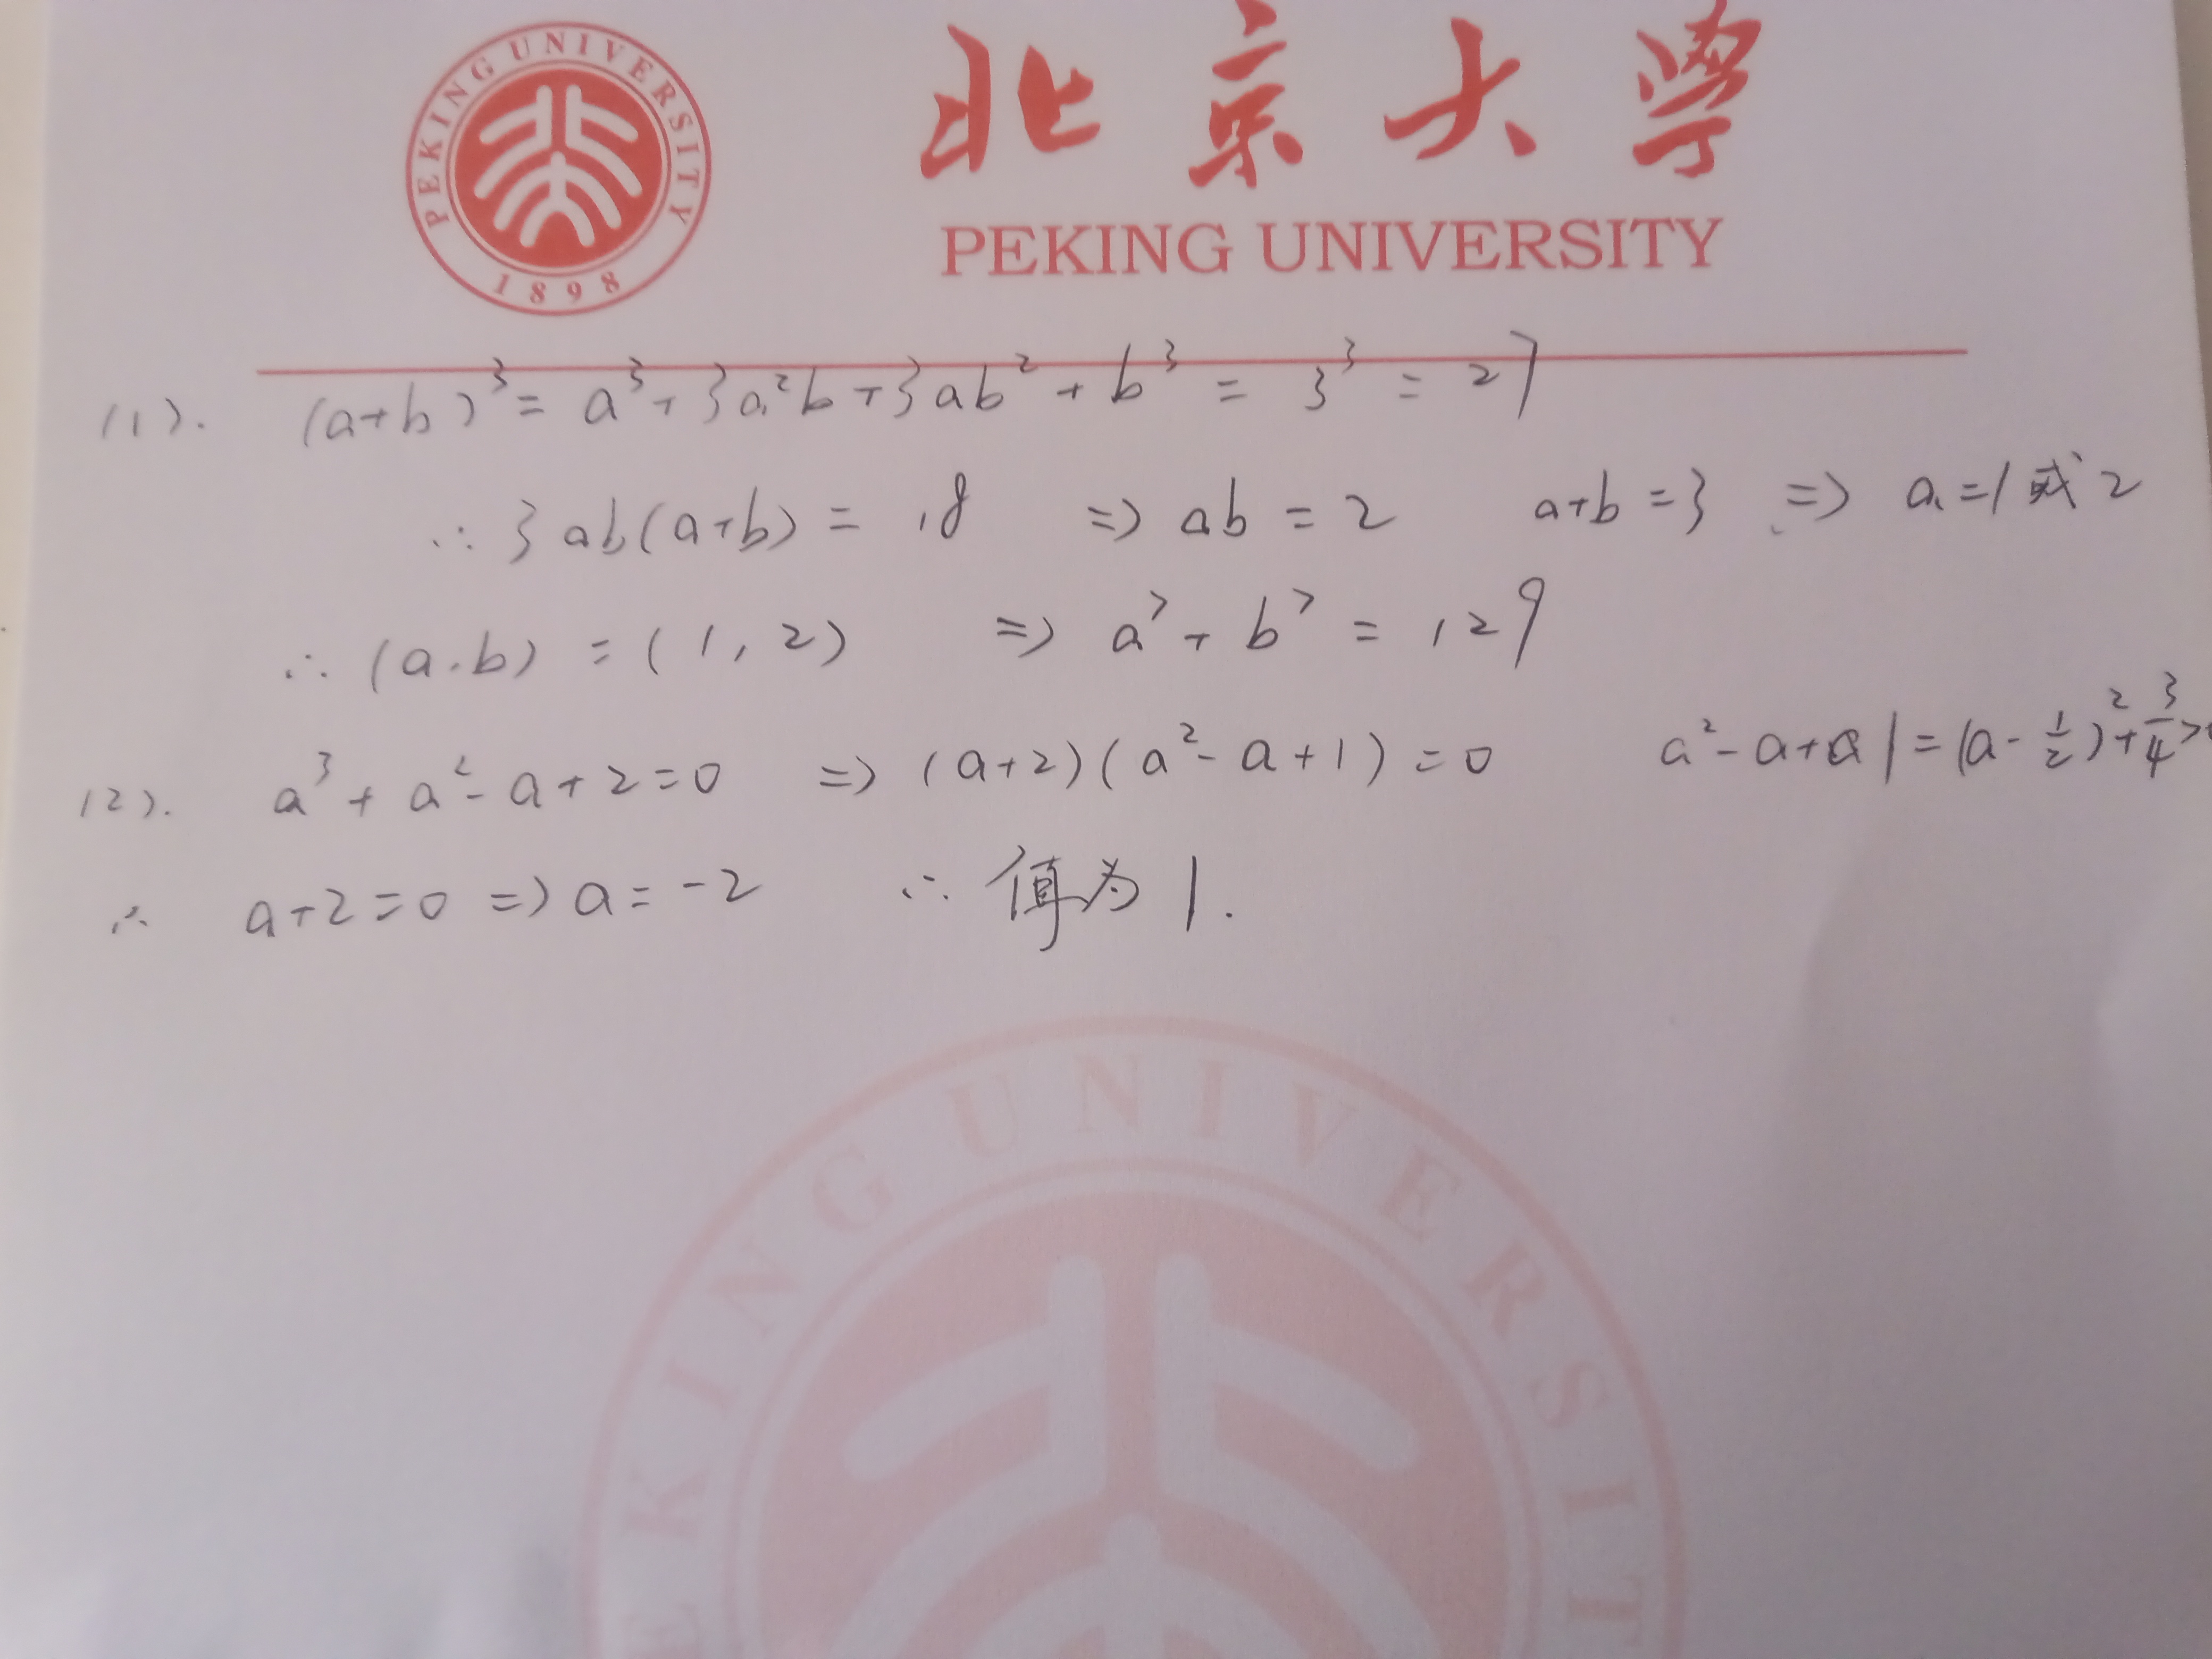 PEKING UNIVERSITY
1898
北京大学
PEKING UNIVERSITY
(1). (a+b)³ = a³+3a²b+3ab²+b³ = 3³ = 27
∴ 3ab(a+b) = 18 => ab = 2 a+b=3 => a=1或2
∴ (a,b) = (1,2) => a⁷+b⁷ = 129
(2). a³+a²-a+2=0 => (a+2)(a²-a+1)=0 a²-a+1=(a-1/2)²+3/4>
∴ a+2=0 => a=-2 ∴ 值为1.
PEKING UNIVERSIT